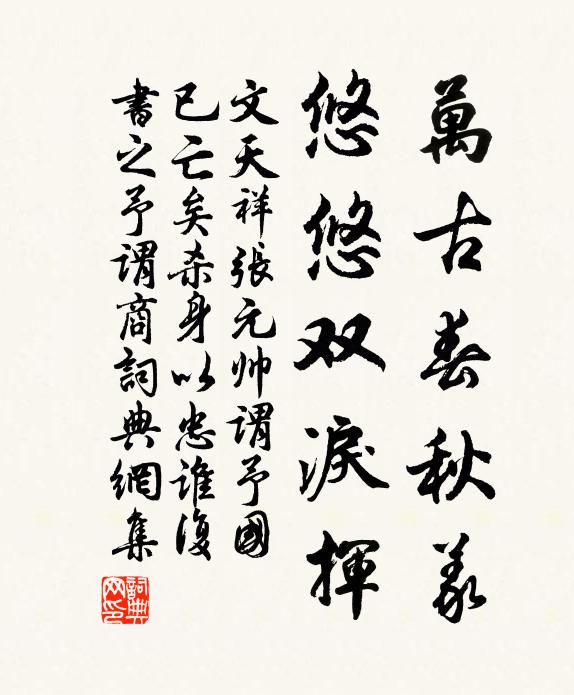 萬古春秋義
悠悠双淚揮
文天祥張元帅謂予國
已亡矣杀身以忠誰復
書之予謂商詞典網集
詞典網印